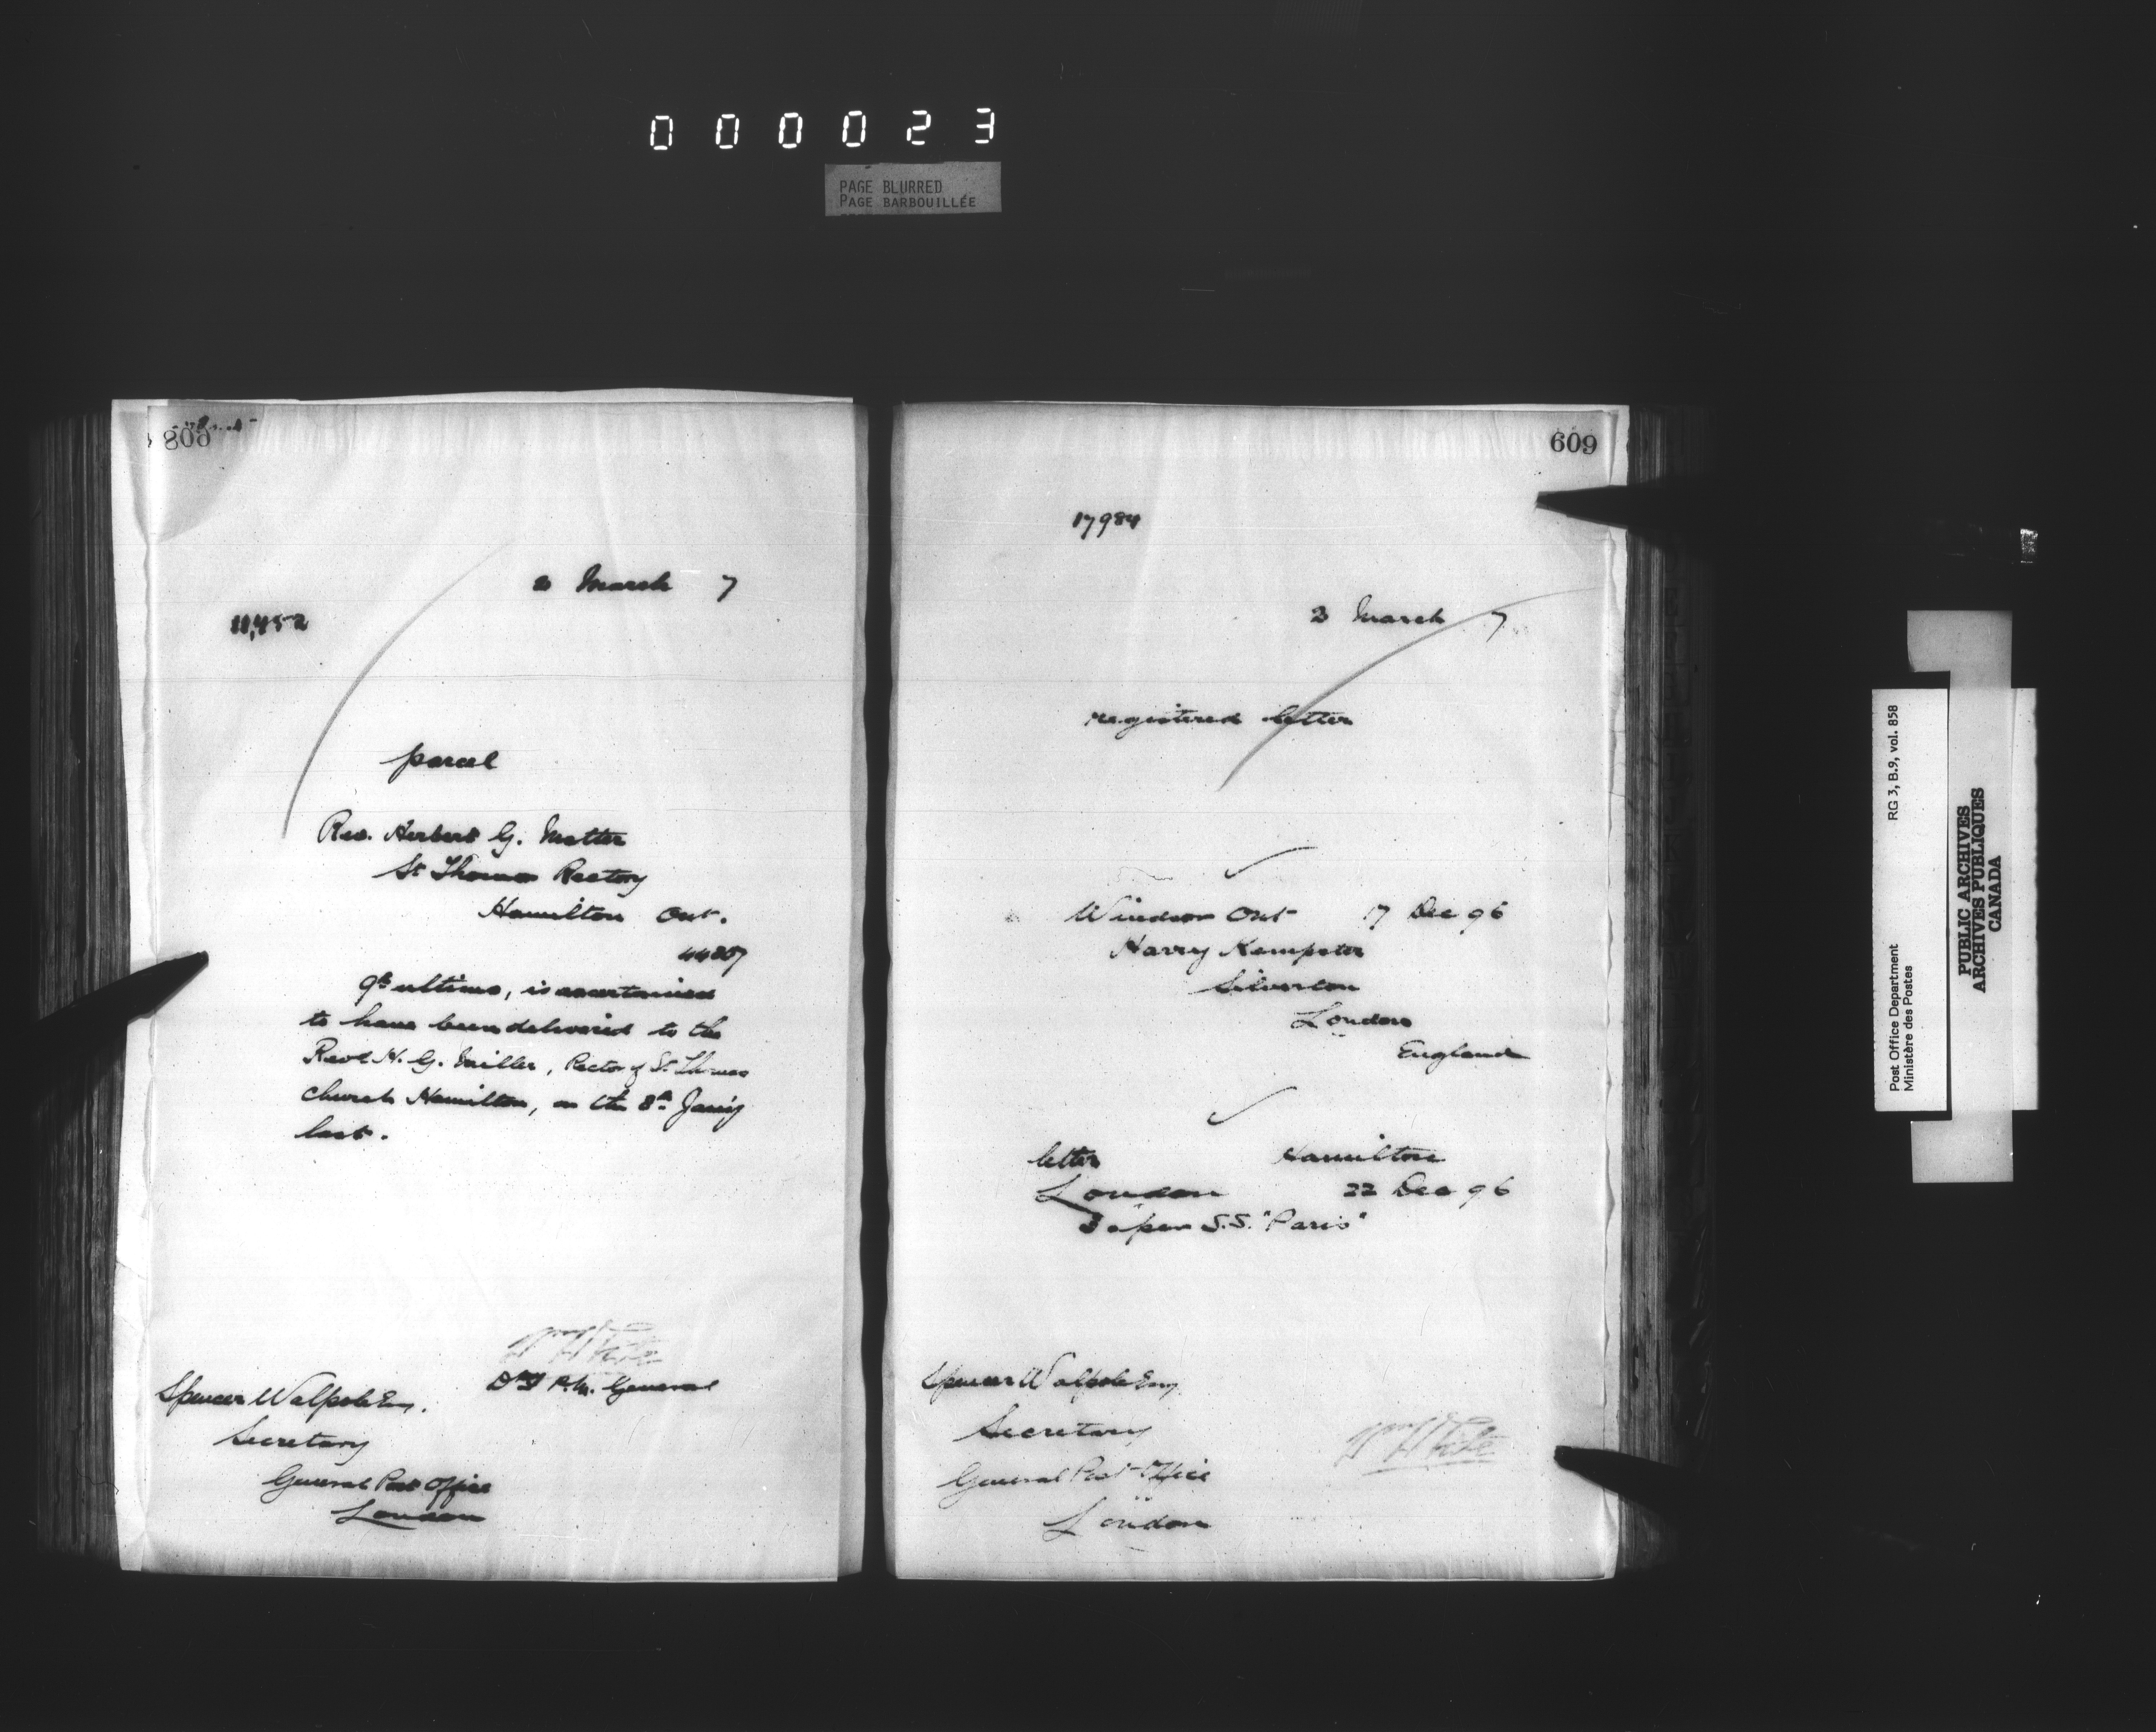 000023
PAGE BLURRED
PAGE BARBOUILLÉE
608
2 March 7
11,452
parcel
Rev. Herbert G. Motter
St Thomas Rectory
Hamilton Ont.
44807
9th ultimo, is ascertained
to have been delivered to the
Revd H. G. Miller, Rector of St. Thomas
church Hamilton, on the 8th Jan'y
last.
Dy P.M. General
Spencer Walpole Esq.
Secretary
General Post Office
London
609
17984
3 March 7
registered letter
Windsor Ont 17 Dec 96
Harry Kempster
Silverton
London
England
letter Hamilton
London 22 Dec 96
per S.S. "Paris"
Spencer Walpole Esq
Secretary
General Post Office
London
Post Office Department
Ministère des Postes
RG 3, B.9, vol. 858
PUBLIC ARCHIVES
ARCHIVES PUBLIQUES
CANADA